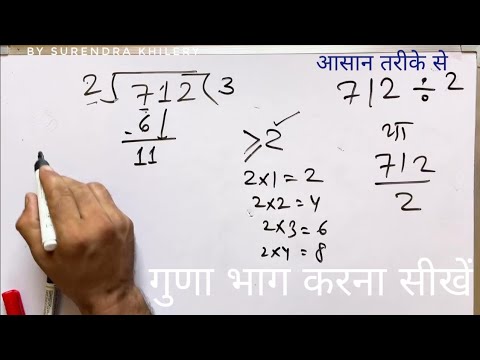 BY SURENDRA KHILERY
आसान तरीके से
2√712(3
-6↓
11
>2✓
2×1=2
2×2=4
2×3=6
2×4=8
712÷2
या
712
2
गुणा भाग करना सीखें